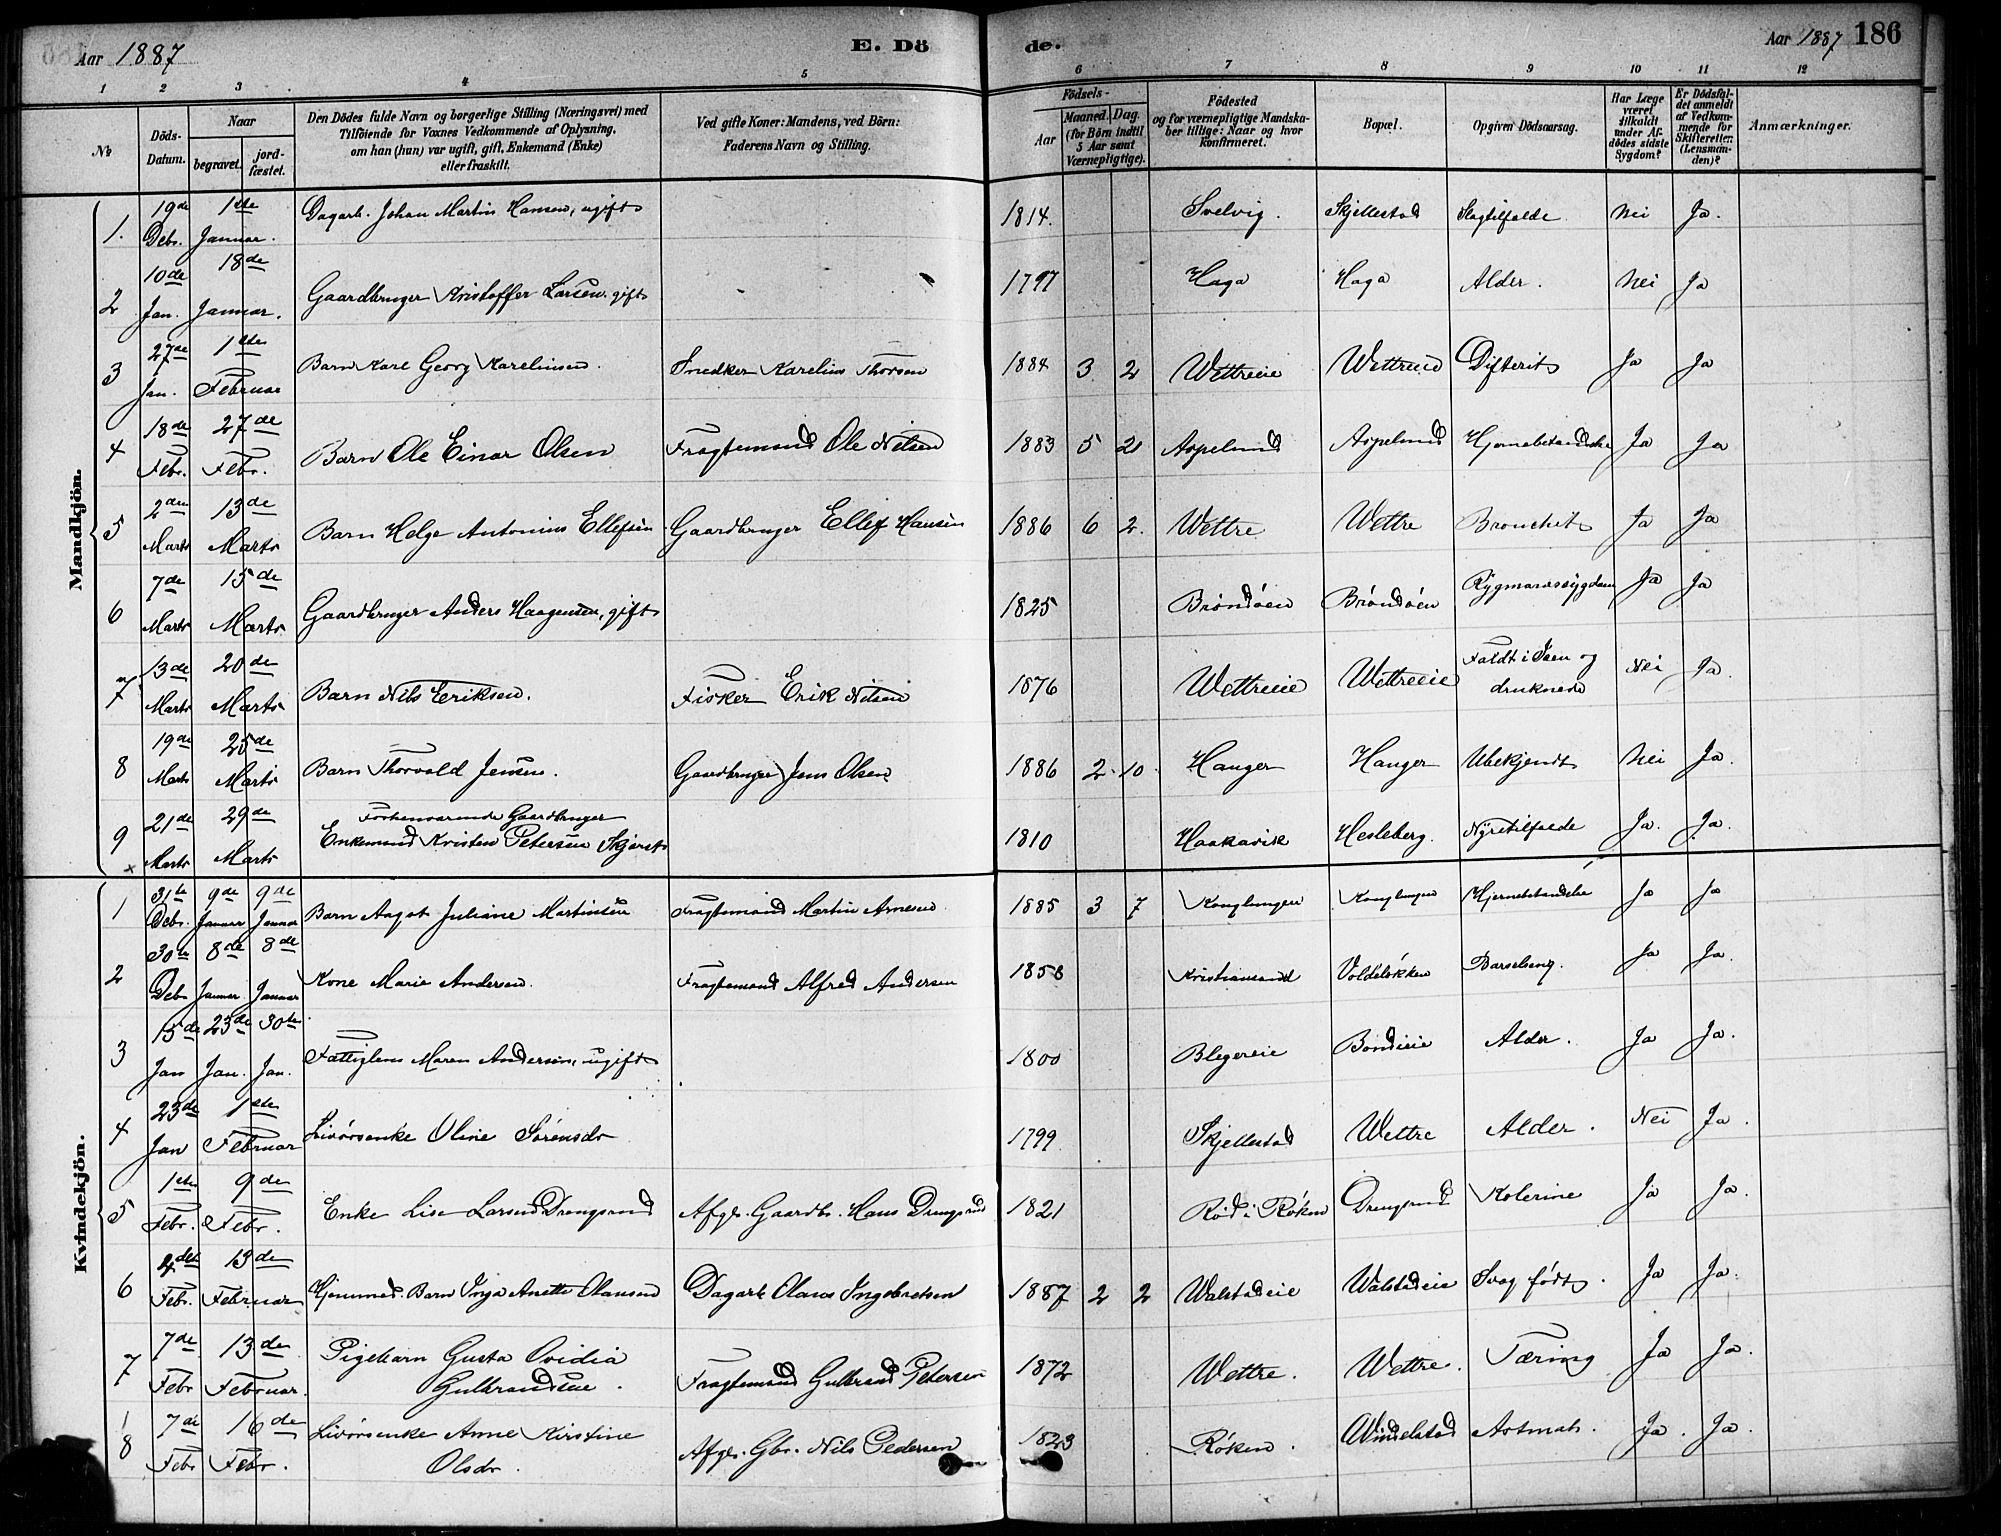 Aar 1887
E. Dö
de.
Aar 1887 186
1 2 3 4 5 6 7 8 9 10 11 12
№
Döds-Datum.
Naar
begravet.
jord-fæstet.
Den Dödes fulde Navn og borgerlige Stilling (Næringsvei) med
Tilföiende for Voxnes Vedkommende af Oplysning,
om han (hun) var ugift, gift, Enkemand (Enke)
eller fraskilt.
Ved gifte Koner: Mandens, ved Börn:
Faderens Navn og Stilling.
Födsels-
Aar
Maaned. Dag.
(for Börn indtil
5 Aar samt
Værnepligtige).
Födested
og for værnepligtige Mandska-
ber tillige: Naar og hvor
konfirmeret.
Bopæl.
Opgiven Dödsaarsag.
Har Læge
været
tilkaldt
under Af-
dödes sidste
Sygdom?
Er Dödsfal-
det anmeldt
af Vedkom-
mende for
Skifteretten
(Lensman-
den)?
Anmærkninger.
Mandkjön.
1. 19de Debr. 1ste Januar. Dagarb. Johan Martin Hansen, ugift 1814. Svelvig. Skjellestad Slagtilfælde Nei Ja.
2 10de Jan. 18de Januar. Gaardbruger Kristoffer Larsen, gift 1797 Haga Haga Alder. Nei Ja
3 27de Jan. 1ste Februar Barn Karl Georg Kareliusen. Snedker Karelius Thorsen 1884 3 2 Wettreeie Wettreeie Difterit Ja Ja
4 18de Febr. 27de Febr. Barn Ole Einar Olsen Fragtemand Ole Nilsen 1883 5 21 Aspelund Aspelund Hjernebetændelse Ja Ja
5 2den Marts 13de Marts Barn Helge Antonius Ellefsen Gaardbruger Ellef Hansen 1886 6 2. Wettre Wettre Bronchit Ja Ja
6 7de Marts 15de Marts Gaardbruger Anders Haagensen, gift 1825 Bröndöen Bröndöen Rygmarvssygdom Ja Ja
7 13de Marts 20de Marts Barn Nils Eriksen. Fisker Erik Nilsen 1876 Wettreeie Wettreeie Faldt i Isen og druknede Nei Ja.
8 19de Marts 25de Marts Barn Thorvald Jensen. Gaardbruger Jens Olsen 1886 2 10 Hanger Hanger Ubekjendt Nei Ja.
9 21de Marts 29de Marts Forhenværende Gaardbruger
Enkemand Kristen Petersen 1810 Haakavik Hesleberg. Nyretilfælde Ja. Ja.
Kvindekjön.
1 31te Debr. 9de Januar 9de Januar Barn Aagot Juliane Martinsen Fragtemand Martin Arnesen 1885 3 7 Konglungen Konglungen Hjernebetændelse Ja Ja
2 30te Debr 8de Januar 8de Januar Kone Marie Andersen. Fragtemand Alfred Andersen 1858 Kristiansand Voldslökken Barselseng. Ja Ja.
3 15de Jan 23de Jan. 30te Jan. Fattiglem Maren Andersen, ugift 1800 Blegereie Bondieie Alder. Ja Ja.
4 23de Jan 1ste Februar Livörsenke Oline Sörensdr 1799 Skjellestad Wettre Alder. Nei Ja.
5 1ste Febr. 9de Febr. Enke Lise Larsen Drengsrud Afgl. Gaardbr. Hans Drengsrud 1821 Röd i Röken Drengsrud Kolerine Ja Ja.
6 Febr. 13de Februar Hjemmed. Barn Inga Anette Olausen Dagarb Olaus Ingebretsen 1887 2 2 Walstadeie Walstadeie Svag födt. Ja Ja.
7 7de Febr 13de Februar. Pigebarn Gusta Ovidia
Gulbrandsen. Fragtemand Gulbrand Petersen 1872 Wettre. Wettre. Tæring Ja Ja.
8 7de Febr 16de Febr. Livörsenke Anne Kirstine
Olsdr. Afgl. Gbr. Nils Pedersen 1823 Röken. Windelstad Astmah. Ja. Ja.